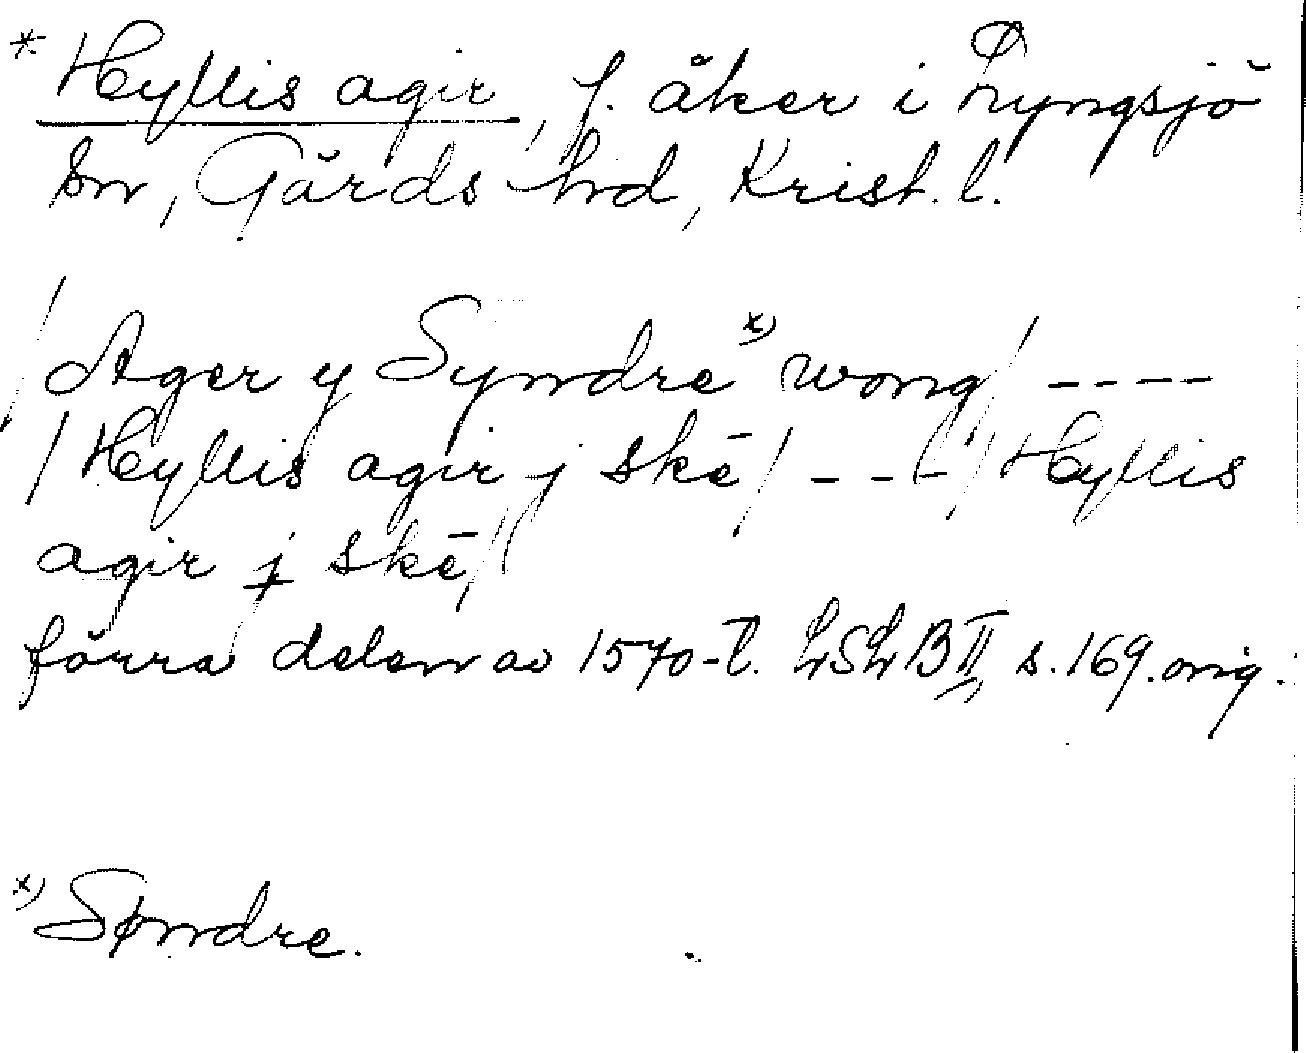 * Hyllis agir, f. åker i Lyngsjö
sn, Gärds hrd, Krist. l.
/ Ager y Syndre *) wong / ----
/ Hyllis agir j skē / --- / Hyllis
agir j skē /
förra delen av 1570-t. LSLB II s. 169. orig.
*) Søndre.